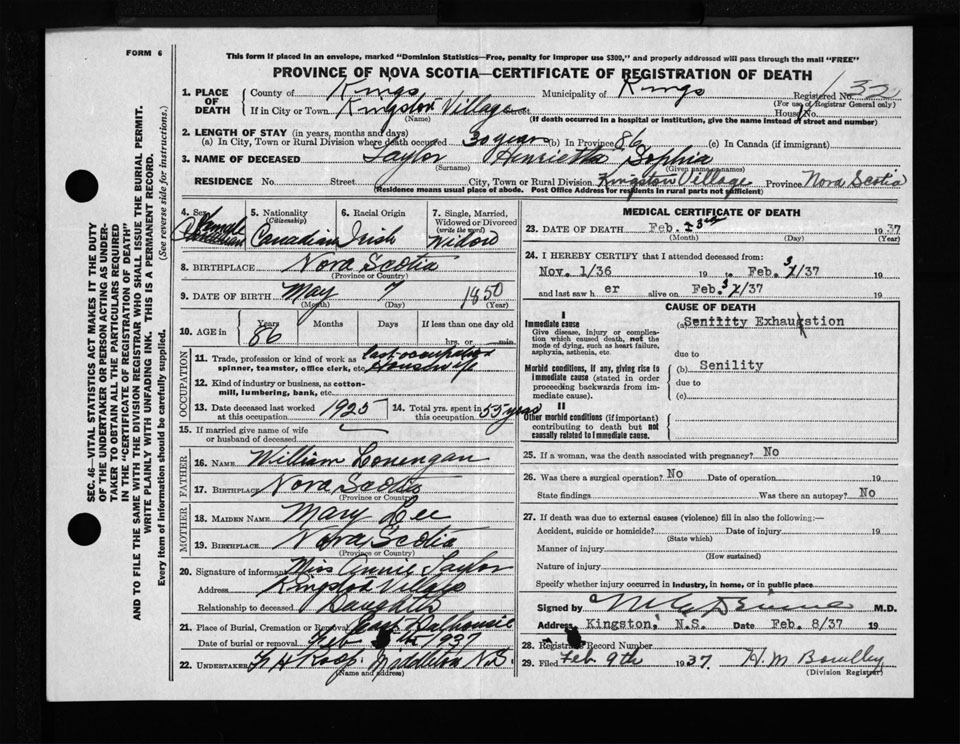 FORM 6
This form if placed in an envelope, marked "Dominion Statistics—Free, penalty for improper use $300," and properly addressed will pass through the mail "FREE"
PROVINCE OF NOVA SCOTIA—CERTIFICATE OF REGISTRATION OF DEATH
SEC. 46—VITAL STATISTICS ACT MAKES IT THE DUTY
OF THE UNDERTAKER OR PERSON ACTING AS UNDER-
TAKER TO OBTAIN ALL THE PARTICULARS REQUIRED
IN THE "CERTIFICATE OF REGISTRATION OF DEATH"
AND TO FILE THE SAME WITH THE DIVISION REGISTRAR WHO SHALL ISSUE THE BURIAL PERMIT.
WRITE PLAINLY WITH UNFADING INK. THIS IS A PERMANENT RECORD.
Every item of information should be carefully supplied. (See reverse side for instructions.)
1. PLACE OF DEATH County of Kings Municipality of Kings Registered No. 32
(For use of Registrar General only)
If in City or Town Kingston Village Street House No.
(Name) (If death occurred in a hospital or institution, give the name instead of street and number)
2. LENGTH OF STAY (in years, months and days)
(a) In City, Town or Rural Division where death occurred 30 years (b) In Province 86 (c) In Canada (if immigrant)
3. NAME OF DECEASED Taylor Henrietta Sophia
(Surname) (Given name or names)
RESIDENCE No. Street City, Town or Rural Division Kingston Village Province Nova Scotia
(Residence means usual place of abode. Post Office Address for residents in rural parts not sufficient)
4. Sex Female
5. Nationality (Citizenship) Canadian
6. Racial Origin Irish
7. Single, Married, Widowed or Divorced (write the word) Widow
8. BIRTHPLACE Nova Scotia
(Province or Country)
9. DATE OF BIRTH May 7 1850
(Month) (Day) (Year)
10. AGE in Years 86 Months Days If less than one day old hrs. or min.
OCCUPATION
11. Trade, profession or kind of work as spinner, teamster, office clerk, etc. last occupation Housewife
12. Kind of industry or business, as cotton-mill, lumbering, bank, etc.
13. Date deceased last worked at this occupation 1925
14. Total yrs. spent in this occupation 55 years
15. If married give name of wife or husband of deceased
FATHER
16. NAME William Lonengan
17. BIRTHPLACE Nova Scotia
(Province or Country)
MOTHER
18. MAIDEN NAME Mary Lee
19. BIRTHPLACE Nova Scotia
(Province or Country)
20. Signature of informant Miss Annie Taylor
Address Kingston Village
Relationship to deceased Daughter
21. Place of Burial, Cremation or Removal East Dalhousie
Date of burial or removal Feb 1937
22. UNDERTAKER Middleton N.S.
(Name and address)
MEDICAL CERTIFICATE OF DEATH
23. DATE OF DEATH Feb. 1937
(Month) (Day) (Year)
24. I HEREBY CERTIFY that I attended deceased from:
Nov. 1/36 19 to Feb. 3/37 19
and last saw her alive on Feb. 3/37 19
CAUSE OF DEATH
I
Immediate cause (a) Senility Exhaustion
Give disease, injury or complication which caused death, not the mode of dying, such as heart failure, asphyxia, asthenia, etc.
due to
Morbid conditions, if any, giving rise to immediate cause (stated in order proceeding backwards from immediate cause). (b) Senility
due to
(c)
II
Other morbid conditions (if important) contributing to death but not causally related to immediate cause.
25. If a woman, was the death associated with pregnancy? No
26. Was there a surgical operation? No Date of operation 19
State findings Was there an autopsy? No
27. If death was due to external causes (violence) fill in also the following:—
Accident, suicide or homicide? Date of injury 19
(State which)
Manner of injury
(How sustained)
Nature of injury
Specify whether injury occurred in industry, in home, or in public place
Signed by M.D.
Address Kingston, N.S. Date Feb. 8/37 19
28. Registrar's Record Number
29. Filed Feb 9th 1937 H. M. Bowlby
(Division Registrar)